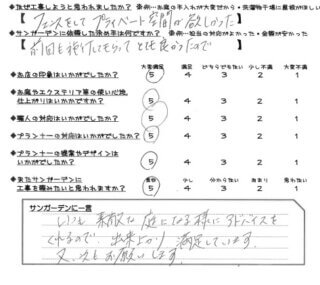 ◆なぜ工事しようと思われましたか？ 参考…お庭の手入れが大変だから・洗濯物干場に屋根がほしい
【 フェンスをして プライベート空間が欲しかった 】
◆サンガーデンに依頼した決め手は何ですか？ 参考…担当の対応がよかった・金額が安かった
【 前回も施工してもらって とても良かったので 】
大変満足 満足 どちらでもない 少し不満 大変不満
◆お庭の印象はいかがでしたか？ 5 4 3 2 1
◆お庭やエクステリア等の使い心地、
仕上がりはいかがですか？ 5 4 3 2 1
◆職人の対応はいかがでしたか？ 5 4 3 2 1
◆プランナーの対応はいかがでしたか？ 5 4 3 2 1
◆プランナーの提案やデザインは
いかがでしたか？ 5 4 3 2 1
少し 分からない あまり 思わない
◆またサンガーデンに
工事を頼みたいと思われますか？ 5 4 3 2 1
サンガーデンに一言
いつも 素敵な 庭になる様に アドバイスを
くれるので、出来上がり 満足しています。
又、次も お願いします。